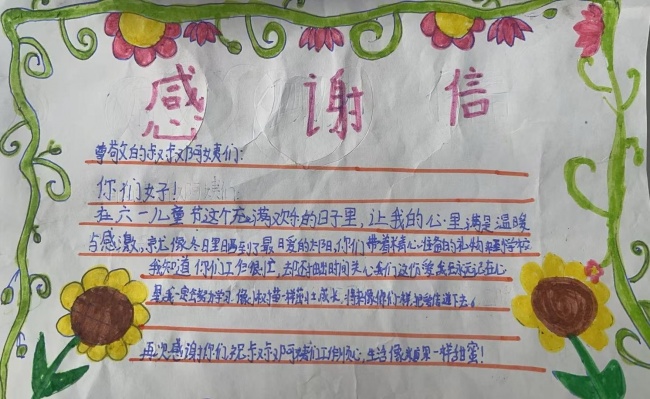 感谢信
尊敬的叔叔阿姨们:
你们好!
在六一儿童节这个充满欢乐的日子里,让我的心里满是温暖
与感激。就像冬日里晒到了最温暖的太阳,你们带着满心准备的礼物来到学校
我知道你们工作很忙,却还抽出时间关心我们这份爱我会永远记在心
里,我一定会努力学习,像小树苗一样茁壮成长,将来像你们一样,把爱传递下去。
再次感谢你们!祝叔叔阿姨们工作顺心,生活像糖果一样甜蜜!